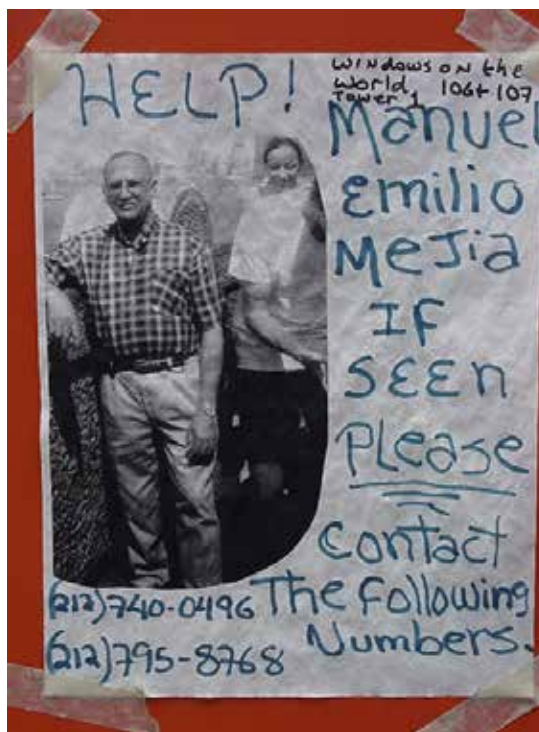 HELP!
Windows on the
World 106+107
Tower 1
Manuel
Emilio
Mejia
If
Seen
Please
Contact
The Following
Numbers.
(212)740-0496
(212)795-8768